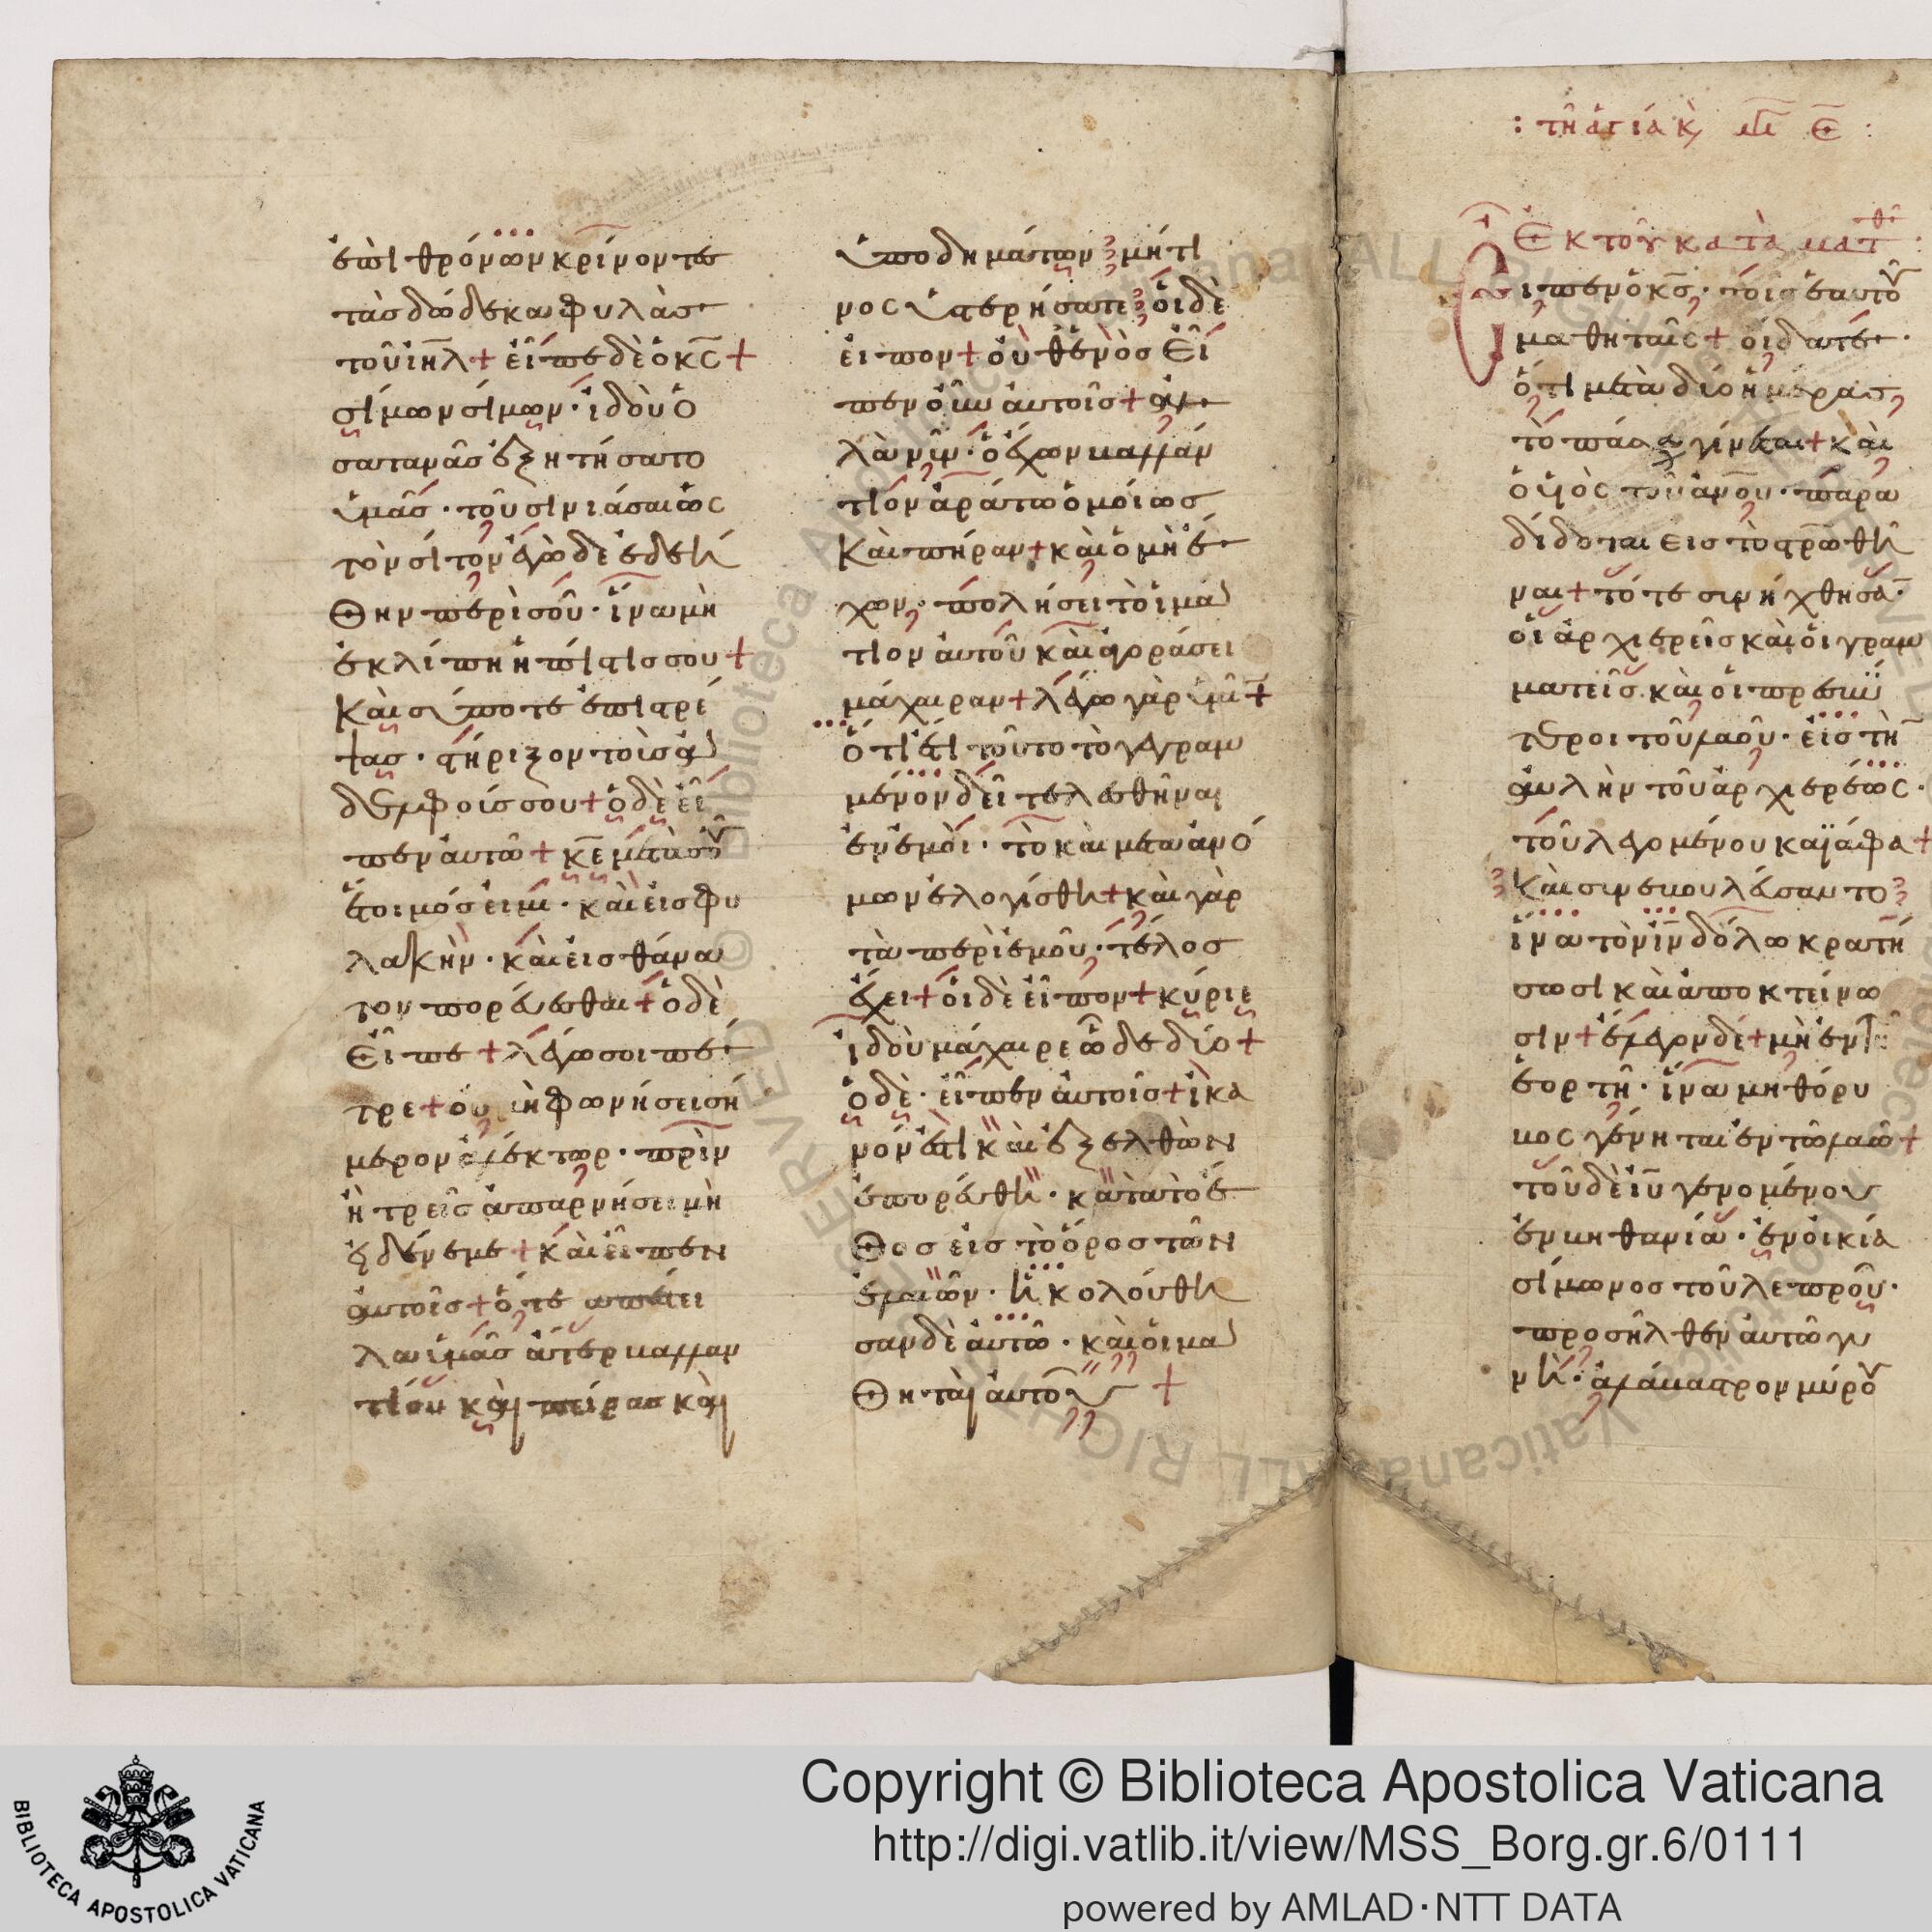 ἐπὶ θρόνων κρίνοντες
τὰς δώδεκα φυλὰς
τοῦ ἰη̅λ + εἶπε δὲ ὁ κς̅ +
σίμων σίμων · ἰδοὺ ὁ
σατανᾶς ἐξητήσατο
ὑμᾶς · τοῦ σινιάσαι ὡς
τὸν σίτον ἐγὼ δε ἐδεή
θην περὶ σοῦ · ἵνα μὴ
ἐκλίπη ἡ πίστις σου +
Καὶ σύ ποτε ἐπιστρέ
ψας · στήριξον τοὶς ἀ
δελφοίς σου + ὁ δὲ εἶ
πεν αυτῶ + κ̅ε μετὰ σοῦ
ἕτοιμός εἰμι · καὶ εἰς φυ
λακὴν · καὶ εἰς θάνα
τον πορεύεσθαι + ὁ δὲ
Εἶπε + λέγω σοι πέ
τρε + οὐ μὴ φωνήσει σή
μερον ἀλέκτωρ · πρὶν
ἢ τρεῖς ἀπαρνήσει μὴ
εἰδέναι με + καὶ εἶπεν
αυτοῖς + ὅτε απέστει
λα ὑμᾶς ἄτερ βαλλαν
τίου καὶ πείρας καὶ
ὑποδημάτων μή τι
νος ὑστερήσατε οἱ δὲ
εἶπον + οὐθενὸς Εἶ
πεν οὖν αυτοῖς + ἀλ
λὰ νῦν · ὁ ἔχων βαλλάν
τιον ἀράτω ὁμοίως
Καὶ πήραν + καὶ ὁ μὴ ἔ
χων · πολήσει τὸ ἱμά
τιον αυτοῦ καὶ ἀγοράσει
μάχαιραν + λέγω γὰρ ὑμῖν +
ὅτι ἔτι τοῦτο τὸ γεγραμ
μένον δεῖ τελεσθῆναι
ἐν ἐμοὶ · τὸ καὶ μετα ανό
μων ἐλογίσθη + καὶ γὰρ
τὰ περὶ ἐμοῦ · τέλος
ἔχει + οἱ δὲ εἶπον + κύριε
ἰδοὺ μάχαιρε ὧδε δύο +
ὁ δὲ · εἶπεν αυτοῖς + ἱκα
νόν ἐστι καὶ ἐξελθὼν
ἐπορεύθη · κατὰ τὸ ἔ
θος εἰς τὸ ὄρος τῶν
ἐλαιῶν · ἠκολούθη
σαν δὲ αυτῶ · καὶ οἱ μα
θηταὶ αυτοῦ +
: τῆ ἁγία κ̀ μ̅ ε̅ :
Ἐκ τοῦ κατὰ ματθ :
Εἶπεν ὁ κς̅ · τοῖς ἑαυτοῦ
μαθηταῖς + οἴδατε ·
ὅτι μετὰ δύο ἡμέρας
τὸ πάσχα γίνεται + καὶ
ὁ υἱὸς τοῦ ἀνου̅ · παρα
δίδοται εις τὸ στρωθῆ
ναι + τότε συνήχθησα̅ ·
οἱ ἀρχιερεῖς καὶ οἱ γραμ
ματεῖς καὶ οἱ πρεσβύ
τεροι τοῦ λαοῦ · εἰς τὴ̅
αυλὴν τοῦ ἀρχιερέως ·
τοῦ λεγομένου καϊάφα +
Καὶ συνεβουλεύσαντο
ἵνα τὸν ιν̅ δόλω κρατή
σωσι καὶ ἀποκτείνω
σιν + ἔλεγον δέ + μὴ ἐν τῆ
ἑορτῆ · ἵνα μη θόρυ
βος γένηται ἐν τῶ λαῶ +
τοῦ δὲ ιυ̅ γενομένου
ἐν βηθανία · ἐν οἰκία
σίμωνος τοῦ λεπροῦ ·
προσῆλθεν αυτῶ γυ
νὴ · ἀλάβαστρον μύρου
Copyright © Biblioteca Apostolica Vaticana
http://digi.vatlib.it/view/MSS_Borg.gr.6/0111
powered by AMLAD·NTT DATA
BIBLIOTECA APOSTOLICA VATICANA